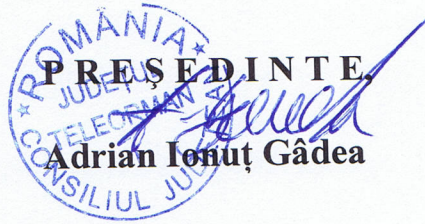 PREŞEDINTE,
Adrian Ionuţ Gâdea
ROMÂNIA
JUDEŢUL
TELEORMAN
CONSILIUL JUDEŢEAN